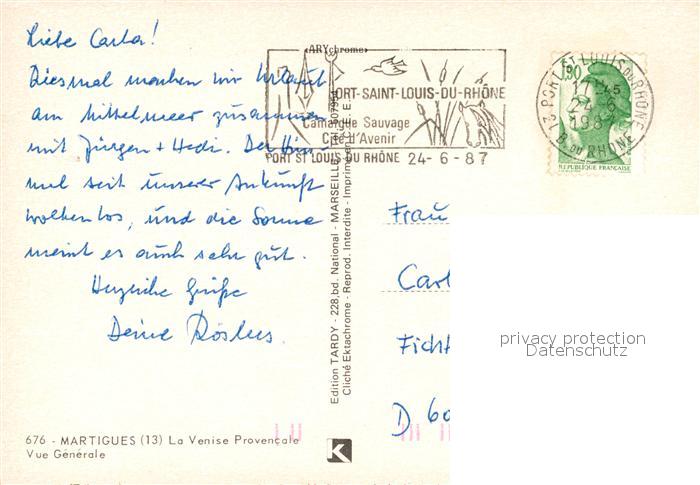 Liebe Carla!
Diesmal machen wir Urlaub
am Mittelmeer zusammen
mit Jürgen + Hedi. Der Him-
mel seit unserer Ankunft
wolkenlos, und die Sonne
meint es auch sehr gut.
Herzliche Grüße
Deine Röslers.
676 - MARTIGUES (13) La Venise Provençale
Vue Générale
«ARYchrome»
PORT-SAINT-LOUIS-DU-RHÔNE
Camargue Sauvage
Cité d'Avenir
PORT ST LOUIS DU RHÔNE 24-6-87
Edition TARDY - 228, bd. National - MARSEILLE
Cliché Ektachrome - Reprod. Interdite - Imprimé en
1,90
13 PORT ST LOUIS DU RHONE
17-45
24-6
1987
B. DU RHONE
REPUBLIQUE FRANÇAISE
Frau
Carl
Ficht
D 60
K
privacy protection
Datenschutz